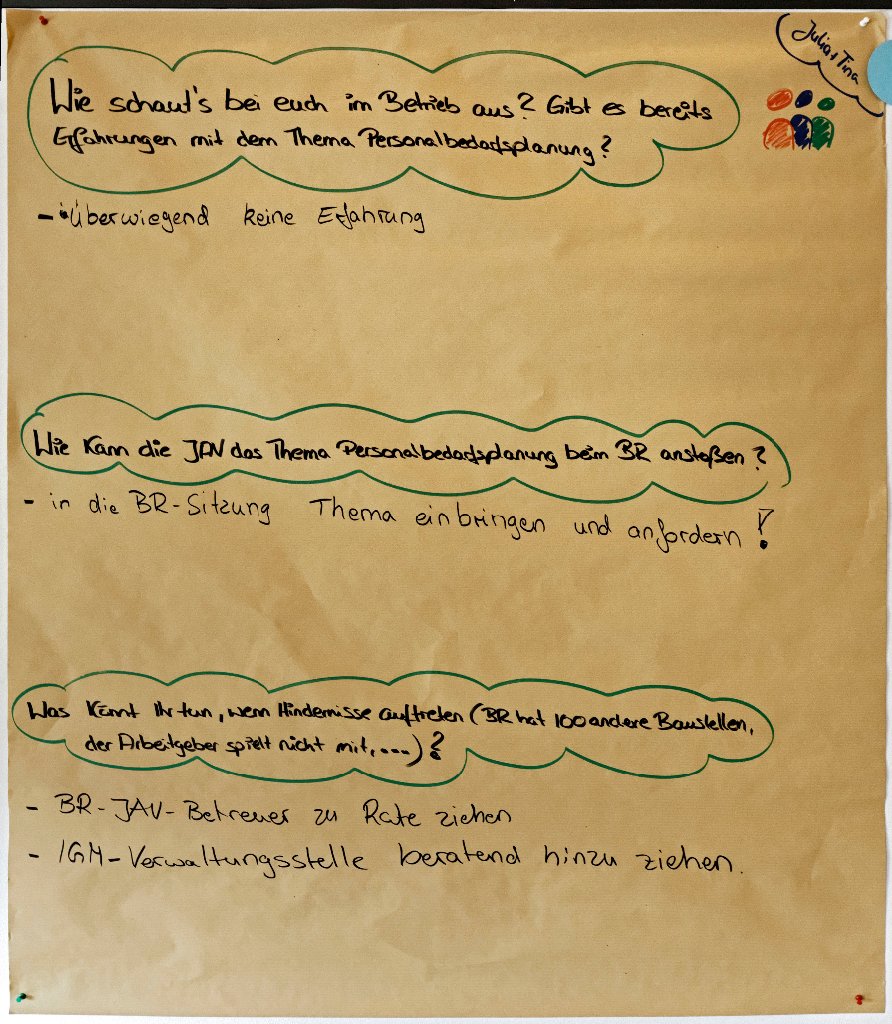 Julia + Tina
Wie schaut's bei euch im Betrieb aus? Gibt es bereits
Erfahrungen mit dem Thema Personalbedarfsplanung?
- Überwiegend keine Erfahrung
Wie kann die JAV das Thema Personalbedarfsplanung beim BR anstoßen?
- in die BR-Sitzung Thema einbringen und anfordern!
Was könnt Ihr tun, wenn Hindernisse auftreten (BR hat 100 andere Baustellen,
der Arbeitgeber spielt nicht mit, ...)?
- BR-JAV-Betreuer zu Rate ziehen
- IGM-Verwaltungsstelle beratend hinzu ziehen.